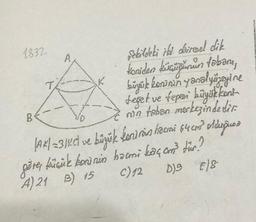 1832.
Şekildeki iki dairesel dik
koniden küçüğünün tabanı,
büyük koninin yanal yüzeyine
teğet ve tepesi büyük koni-
nin taban merkezindedir.
A
T
K
B
O
C
|AK|=3|KC| ve büyük koninin hacmi 64 cm³ olduğuna
göre, küçük koninin hacmi kaç cm³ tür?
A) 21 B) 15 C) 12 D) 9 E) 8